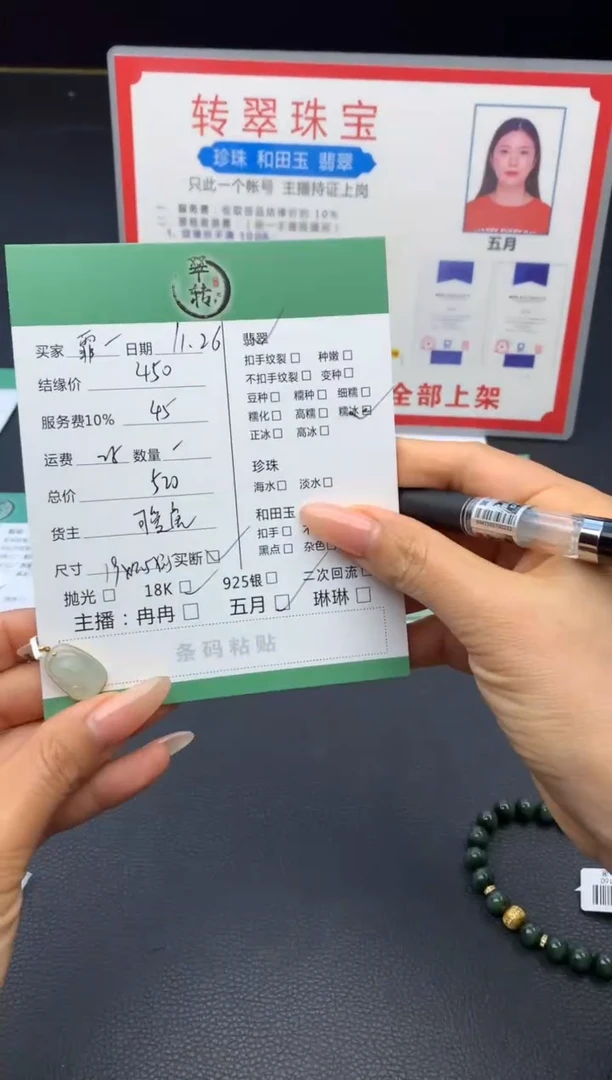 转翠珠宝
珍珠 和田玉 翡翠
只此一个帐号 主播持证上岗
一 服务费：收取货品结缘价的 10%
五月
全部上架
翠转
买家 霏一 日期 11.26
结缘价 450
服务费10% 45
运费 数量 一
总价 520
货主
尺寸 买断
抛光 18K 925银 二次回流
主播：冉冉 五月 琳琳
条码粘贴
翡翠
扣手纹裂 种嫩
不扣手纹裂 变种
豆种 糯种 细糯
糯化 高糯 糯冰
正冰 高冰
珍珠
海水 淡水
和田玉
扣手
黑点 杂色